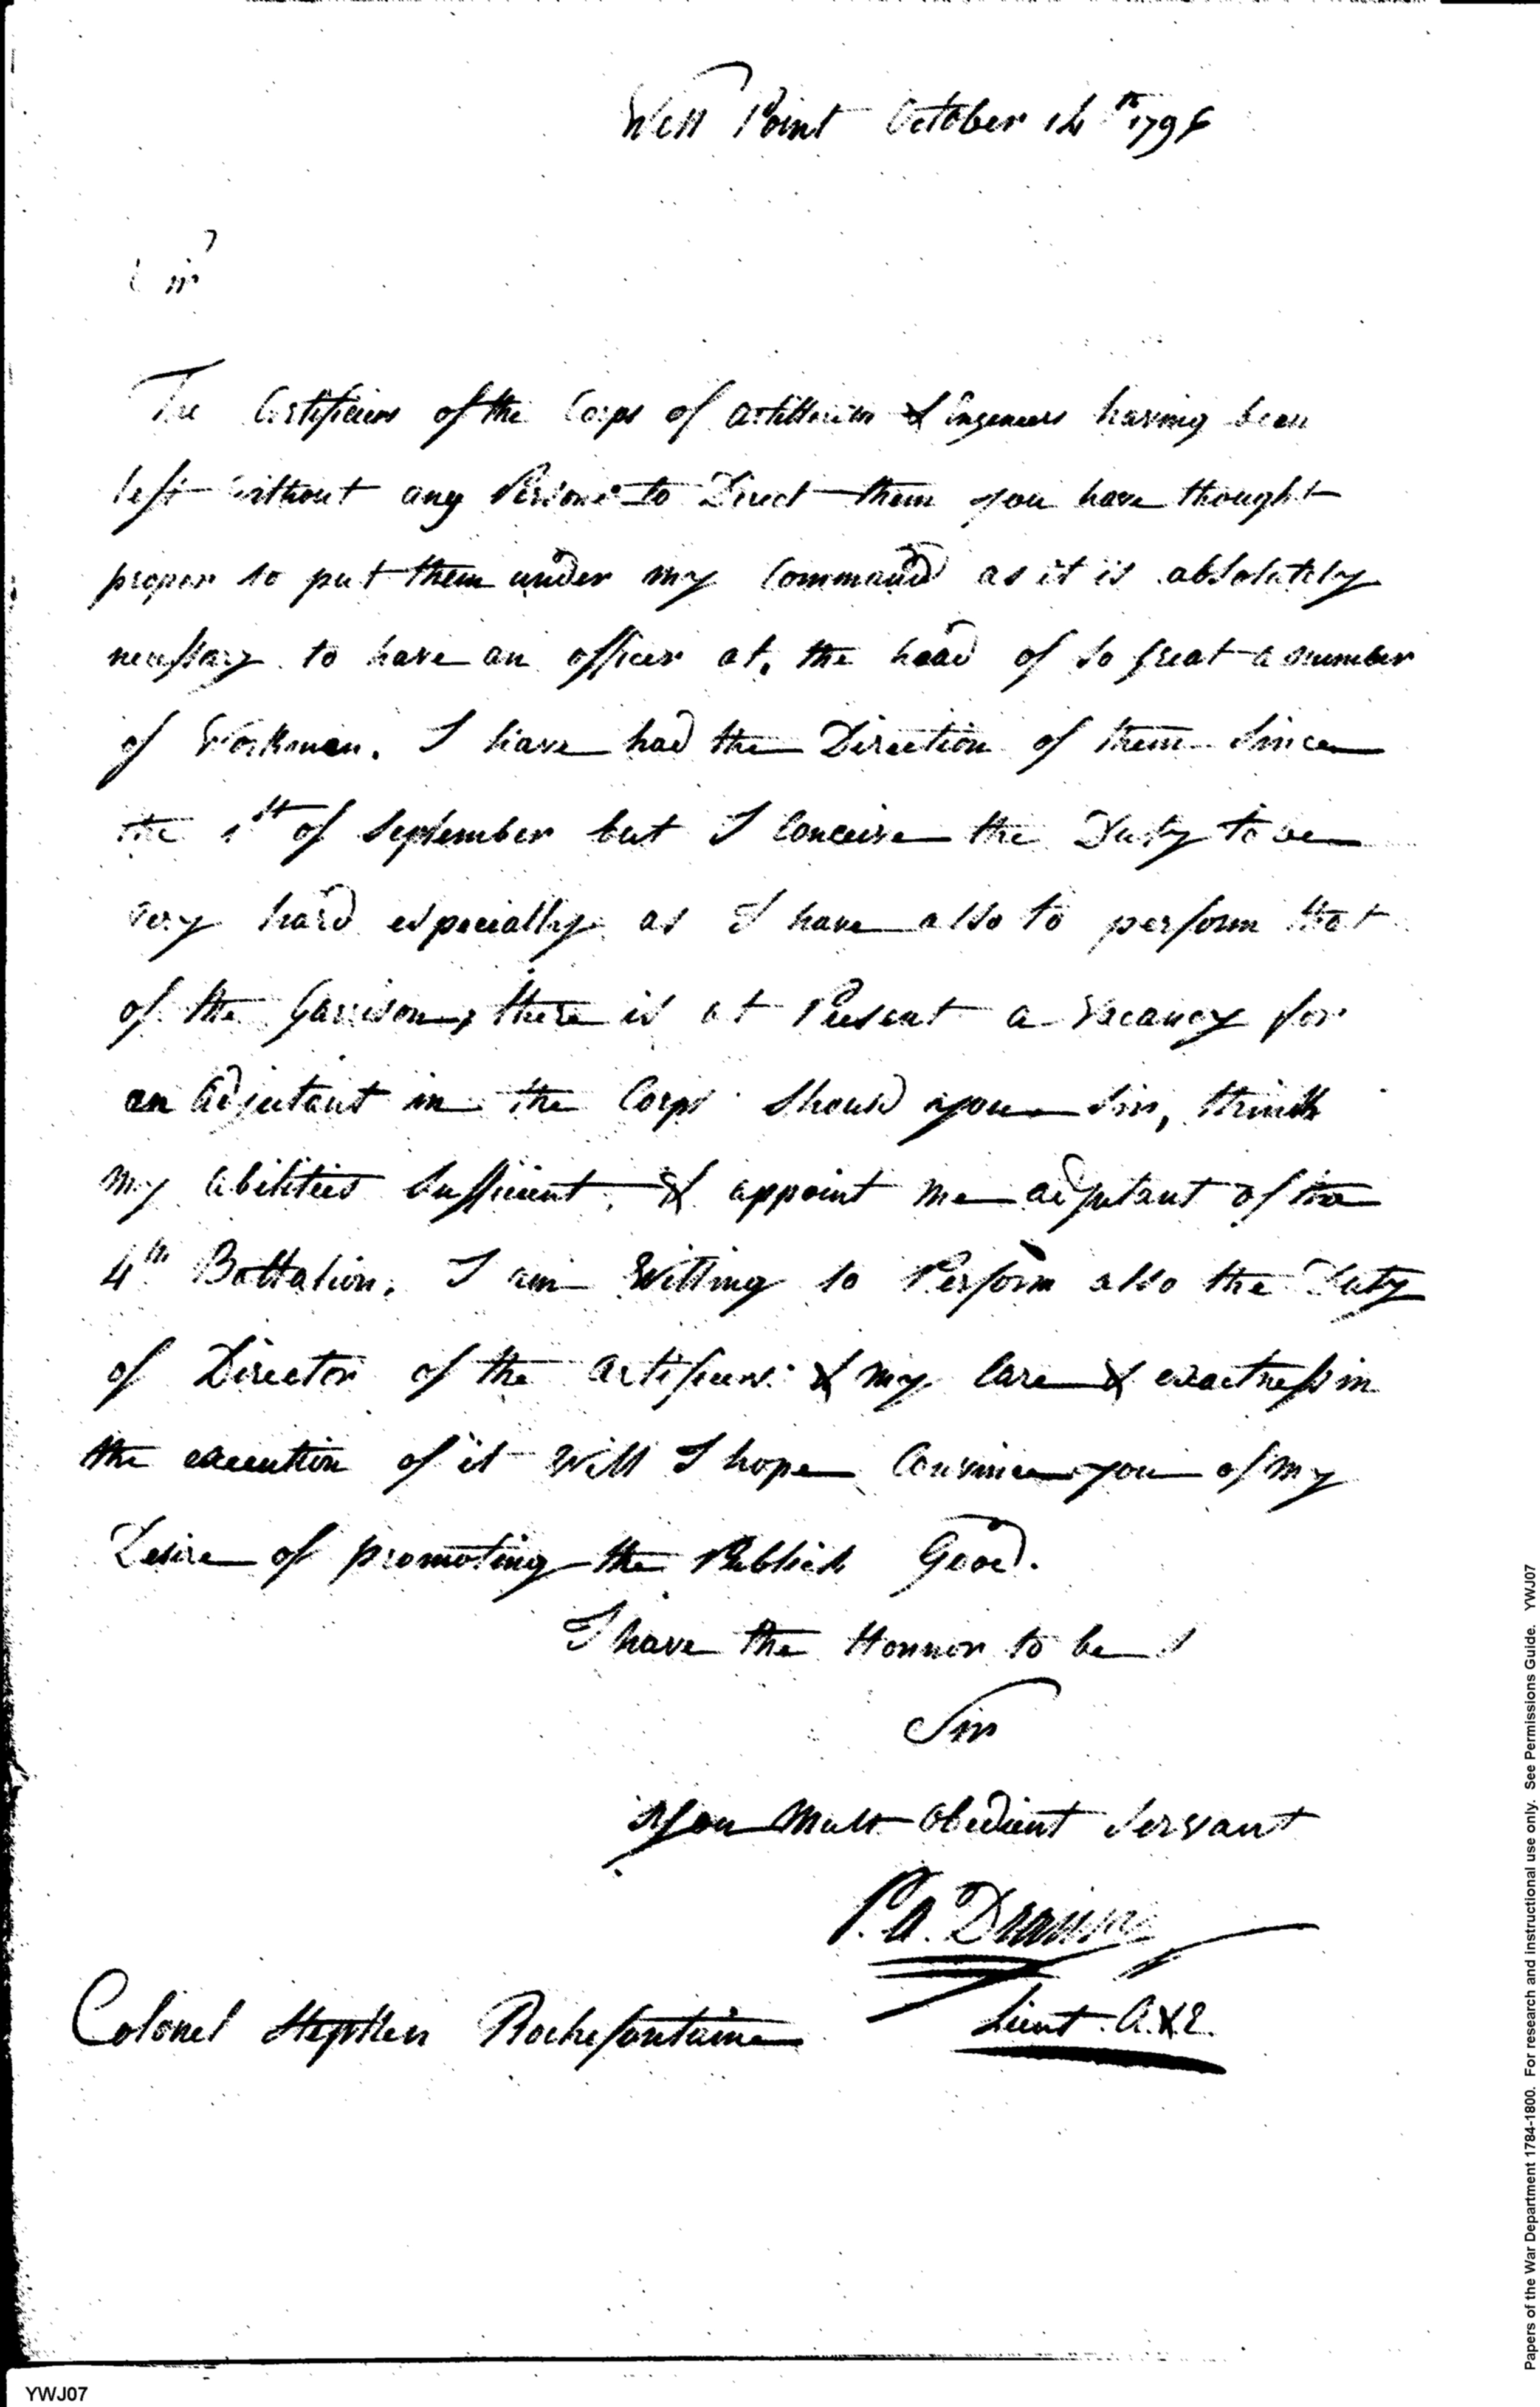 West Point October 14th 1796
Sir
The Artificers of the Corps of Artillerists & Engeneers having been
left without any Persone to Direct them you have thought
proper to put them under my Command as it is absolutely
necessary to have an officer at, the head of so great a number
of Workmen. I have had the Direction of them since
the 1st of September but I Conceive the Duty to be
very hard especially as I have also to perform that
of the Garrison, there is at Present a Vacancy for
an Adjutant in the Corps should you Sir, think
my abilities sufficient, & appoint me adjutant of the
4th Battalion, I am Willing to Perform also the Duty
of Director of the artificers & my Care & exactness in
the execution of it Will I hope Convince you of my
Desire of promoting the Publick Good.
I have the Honnor to be
Sir
Your Most Obedient Servant
P. A.
Lieut. A. & E.
Colonel Stephen Rochefontaine
Papers of the War Department 1784-1800. For research and instructional use only. See Permissions Guide. YWJ07
YWJ07